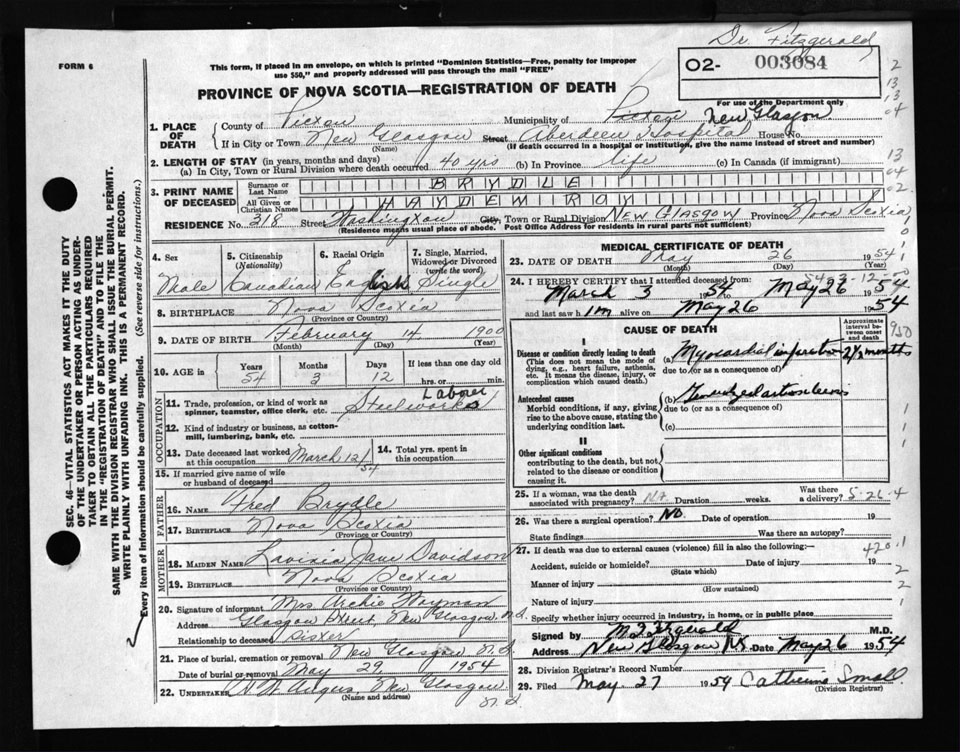 Dr. Fitzgerald
FORM 6
This form, if placed in an envelope, on which is printed "Dominion Statistics—Free, penalty for improper
use $50," and properly addressed will pass through the mail "FREE"
O2- 003084
PROVINCE OF NOVA SCOTIA—REGISTRATION OF DEATH
For use of the Department only
1. PLACE OF DEATH
County of Pictou Municipality of Pictou New Glasgow
If in City or Town New Glasgow Street Aberdeen Hospital House No.
(Name) (If death occurred in a hospital or institution, give the name instead of street and number)
2. LENGTH OF STAY (in years, months and days)
(a) In City, Town or Rural Division where death occurred 40 yrs (b) In Province life (c) In Canada (if immigrant)
3. PRINT NAME OF DECEASED
Surname or Last Name BRYDLE
All Given or Christian Names HAYDEW ROY
RESIDENCE No. 318 Street Washington City, Town or Rural Division NEW GLASGOW Province Nova Scotia
(Residence means usual place of abode. Post Office Address for residents in rural parts not sufficient)
4. Sex 5. Citizenship (Nationality) 6. Racial Origin 7. Single, Married, Widowed or Divorced (write the word)
Male Canadian English Single
8. BIRTHPLACE Nova Scotia
(Province or Country)
9. DATE OF BIRTH February 14 1900
(Month) (Day) (Year)
10. AGE in Years Months Days If less than one day
54 3 12 hrs. or min.
11. Trade, profession, or kind of work as spinner, teamster, office clerk, etc. Steelworks Laborer
12. Kind of industry or business, as cotton-mill, lumbering, bank, etc.
13. Date deceased last worked at this occupation March 12/54
14. Total yrs. spent in this occupation
15. If married give name of wife or husband of deceased
FATHER
16. NAME Fred Brydle
17. BIRTHPLACE Nova Scotia
(Province or Country)
MOTHER
18. MAIDEN NAME Lavinia Jane Davidson
19. BIRTHPLACE Nova Scotia
(Province or Country)
20. Signature of informant Mrs. Archie Wayman
Address New Glasgow N.S.
Relationship to deceased Sister
21. Place of burial, cremation or removal New Glasgow N.S.
Date of burial or removal May 29, 1954
22. UNDERTAKER New Glasgow N.S.
(Name and address)
MEDICAL CERTIFICATE OF DEATH
23. DATE OF DEATH May 26 1954
(Month) (Day) (Year)
24. I HEREBY CERTIFY that I attended deceased from:
March 3 1954 to May 26 1954
and last saw him alive on May 26 1954
CAUSE OF DEATH
Approximate interval between onset and death
I
Disease or condition directly leading to death
(This does not mean the mode of dying, e.g., heart failure, asthenia, etc. It means the disease, injury, or complication which caused death.)
(a) Myocardial infarction 2 1/2 months
due to (or as a consequence of)
Antecedent causes
Morbid conditions, if any, giving rise to the above cause, stating the underlying condition last.
(b) Generalized arteriosclerosis
due to (or as a consequence of)
(c)
II
Other significant conditions
contributing to the death, but not related to the disease or condition causing it.
25. If a woman, was the death associated with pregnancy? NA Duration weeks. Was there a delivery? 5-26-4
26. Was there a surgical operation? No. Date of operation 19
State findings Was there an autopsy?
27. If death was due to external causes (violence) fill in also the following: 420.1
Accident, suicide or homicide? Date of injury 19
(State which)
Manner of injury
(How sustained)
Nature of injury
Specify whether injury occurred in industry, in home, or in public place
Signed by M. Fitzgerald M.D.
Address New Glasgow NS Date May 26 1954
28. Division Registrar's Record Number
29. Filed May 27 1954 Catherine Small
(Division Registrar)
SEC. 46—VITAL STATISTICS ACT MAKES IT THE DUTY
OF THE UNDERTAKER OR PERSON ACTING AS UNDER-
TAKER TO OBTAIN ALL THE PARTICULARS REQUIRED
IN THE "REGISTRATION OF DEATH" AND TO FILE THE
SAME WITH THE DIVISION REGISTRAR WHO SHALL ISSUE THE BURIAL PERMIT.
WRITE PLAINLY WITH UNFADING INK. THIS IS A PERMANENT RECORD.
Every item of information should be carefully supplied. (See reverse side for instructions.)